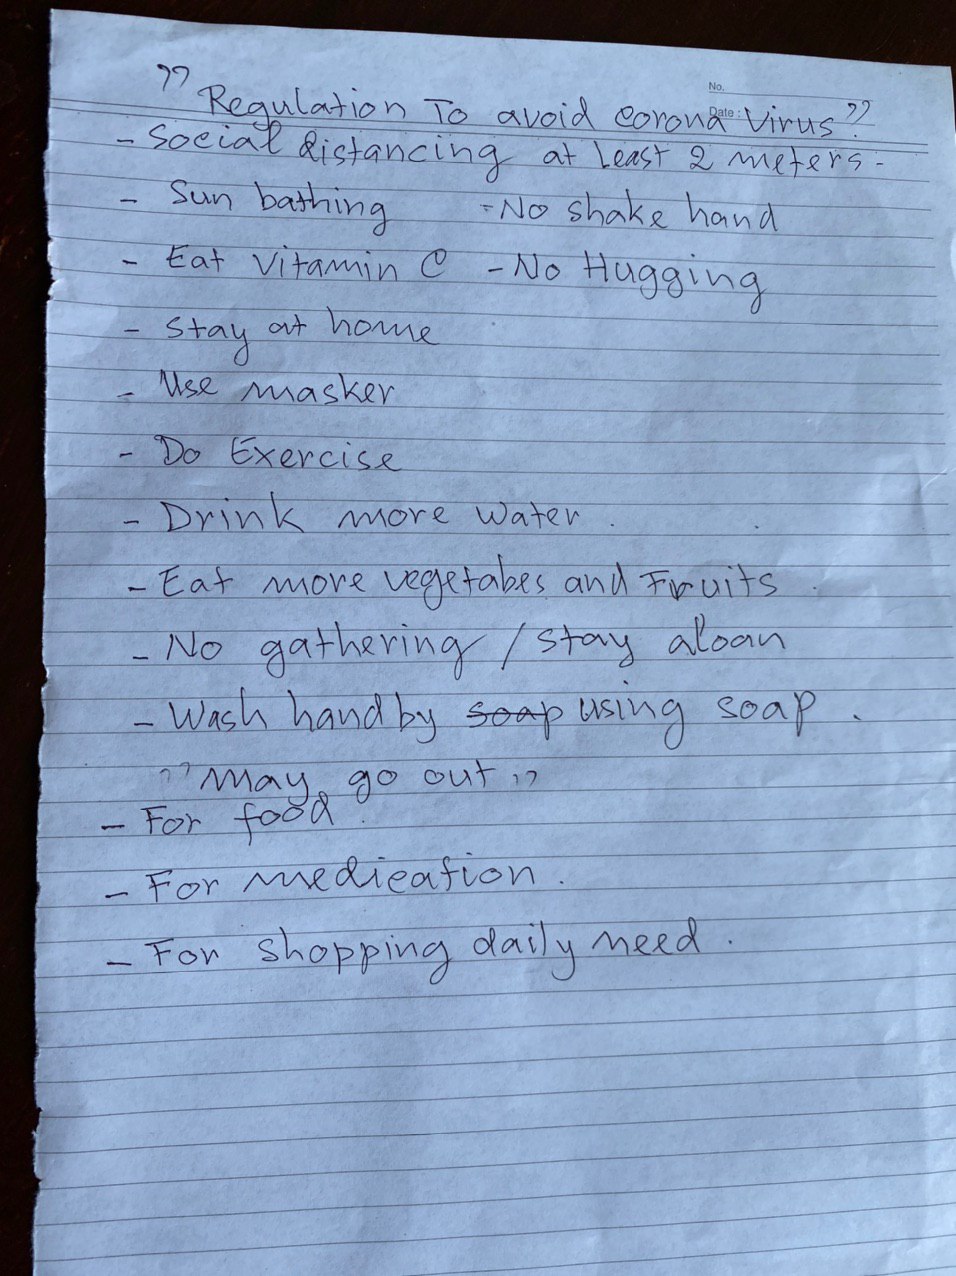 No.
Date:
"Regulation To avoid corona Virus"
- Social distancing at least 2 meters -
- Sun bathing - No shake hand
- Eat vitamin C - No Hugging
- Stay at home
- Use masker
- Do Exercise
- Drink more water.
- Eat more vegetabes and Fruits.
- No gathering / stay aloan
- Wash hand by soap using soap.
"may go out"
- For food.
- For medication.
- For shopping daily need.